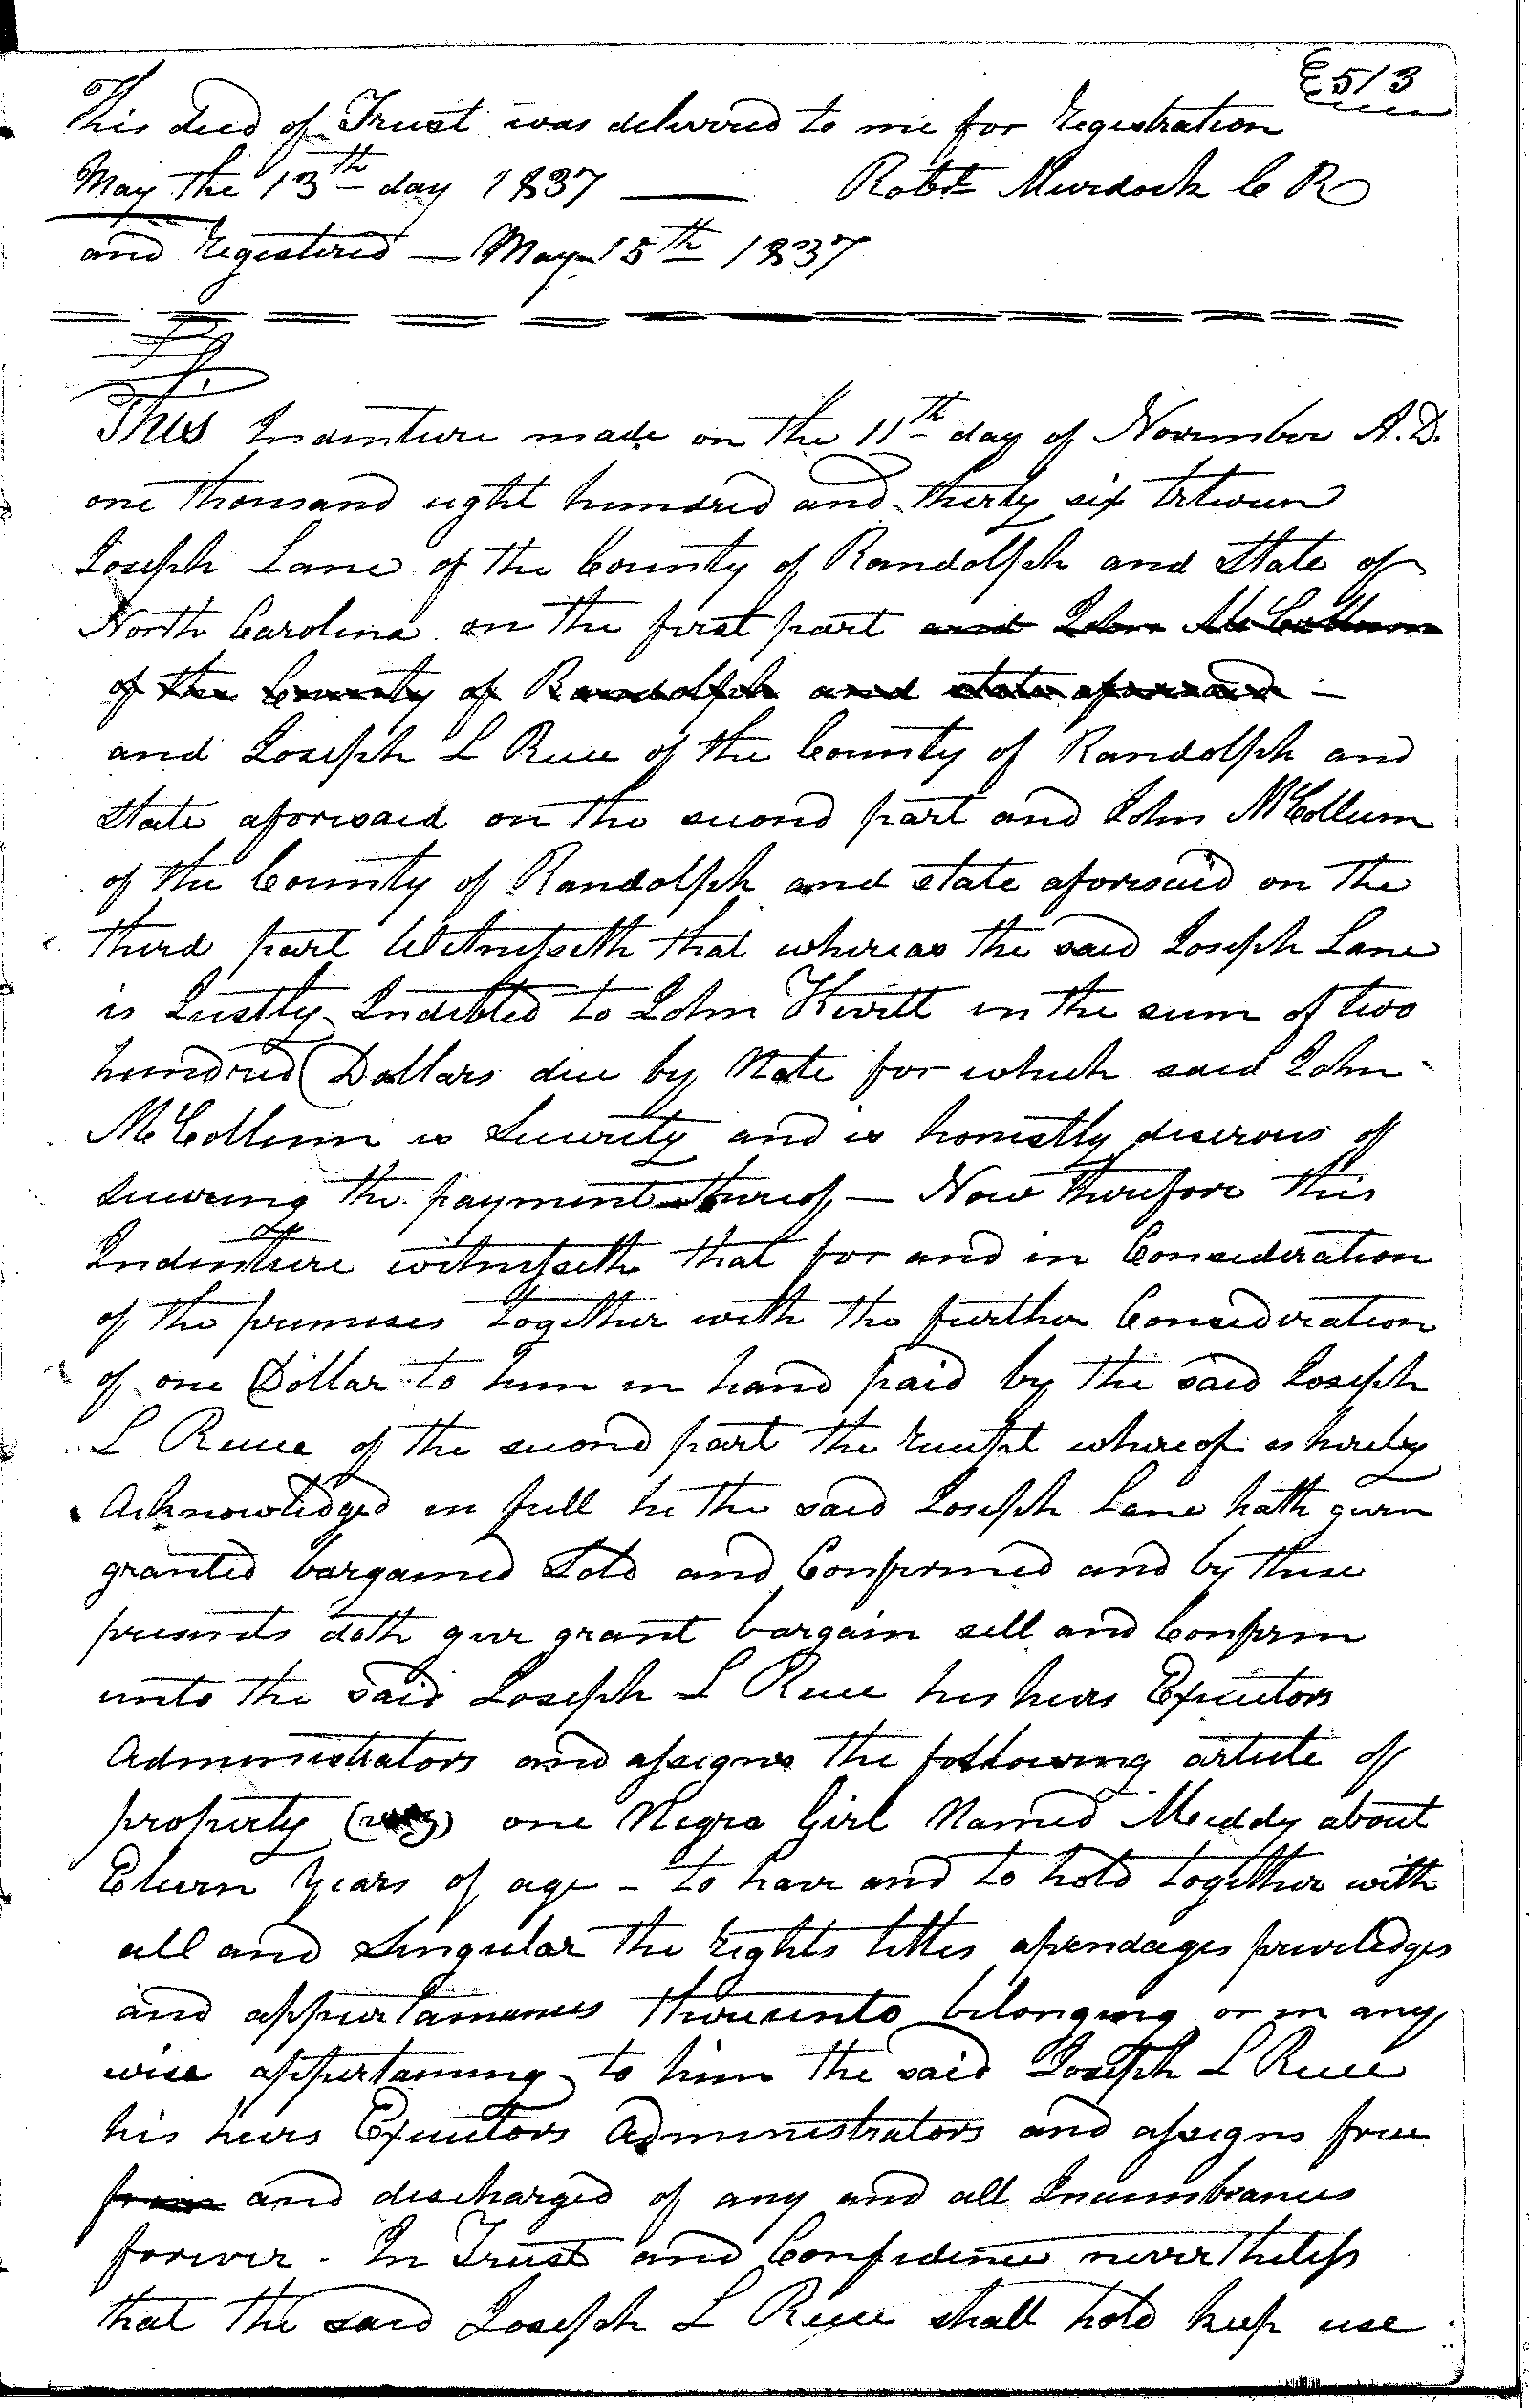 513
This deed of Trust was delivered to me for Registration
May the 13th day 1837 — Robt Murdock C R
and Registered — May 15th 1837
This Indenture made on the 11th day of November A.D.
one thousand eight hundred and thirty six between
Joseph Lane of the County of Randolph and State of
North Carolina on the first part and John McCollum
of the County of Randolph and state aforesaid –
and Joseph L Reece of the County of Randolph and
State aforesaid on the second part and John McCollum
of the County of Randolph and state aforesaid on the
third part Witnesseth that whereas the said Joseph Lane
is Justly Indebted to John Kivett in the sum of two
hundred Dollars due by Note for which said John
McCollum is Security and is honestly diserous of
securing the payment thereof — Now Therefore this
Indenture witnesseth that for and in Consideration
of the premises together with the further Consideration
of one Dollar to him in hand paid by the said Joseph
L Reece of the second part the receipt whereof is hereby
Acknowledged in full he the said Joseph Lane hath given
granted bargained Sold and Confirmed and by these
presents doth give grant bargain sell and Confirm
unto the said Joseph L Reece his heirs Executors
Administrators and assigns the following article of
property one Negro Girl Named Meddy about
Eleven Years of age – to have and to hold together with
all and Singular the rights titles apendages priviledges
and appurtanances thereunto belonging or in any
wise appertaining to him the said Joseph L Reece
his heirs Executors Administrators and assigns free
from and discharged of any and all Incumbrances
forever. In Trust and Confidence nevertheless
that the said Joseph L Reece shall hold keep use